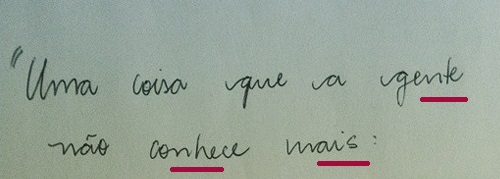 "Uma coisa que a gente
não conhece mais: